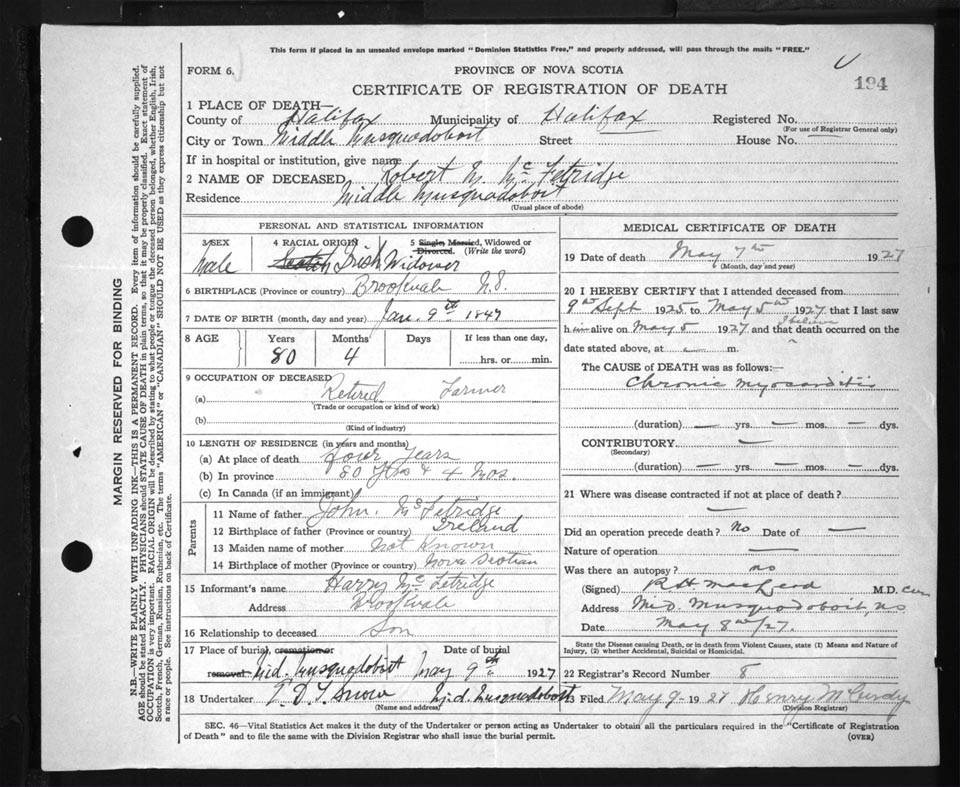 This form if placed in an unsealed envelope marked "Dominion Statistics Free," and properly addressed, will pass through the mails "FREE."
194
FORM 6.
PROVINCE OF NOVA SCOTIA
CERTIFICATE OF REGISTRATION OF DEATH
1 PLACE OF DEATH—
County of Halifax Municipality of Halifax Registered No.
(For use of Registrar General only)
City or Town Middle Musquodoboit Street House No.
If in hospital or institution, give name
2 NAME OF DECEASED Robert M McFetridge
Residence Middle Musquodoboit
(Usual place of abode)
PERSONAL AND STATISTICAL INFORMATION
3 SEX Male
4 RACIAL ORIGIN Scotch Irish
5 Single, Married, Widowed or Divorced. (Write the word) Widower
6 BIRTHPLACE (Province or country) Brookvale N.S.
7 DATE OF BIRTH (month, day and year) Jan. 9th 1847
8 AGE Years Months Days If less than one day,
80 4 hrs. or min.
9 OCCUPATION OF DECEASED
(a) Retired Farmer
(Trade or occupation or kind of work)
(b)
(Kind of industry)
10 LENGTH OF RESIDENCE (in years and months)
(a) At place of death Four Years
(b) In province 80 Yrs & 4 Mos.
(c) In Canada (if an immigrant)
Parents
11 Name of father John McFetridge
12 Birthplace of father (Province or country) Ireland
13 Maiden name of mother Not Known
14 Birthplace of mother (Province or country) Nova Scotian
15 Informant's name Harry McFetridge
Address Brookvale
16 Relationship to deceased Son
17 Place of burial, cremation or removal Mid. Musquodoboit Date of burial May 9th 1927
18 Undertaker Snow Mid. Musquodoboit
(Name and address)
MEDICAL CERTIFICATE OF DEATH
19 Date of death May 7th 1927
(Month, day and year)
20 I HEREBY CERTIFY that I attended deceased from
9th Sept 1925 to May 5th 1927 that I last saw
him alive on May 5 1927 and that I believe death occurred on the
date stated above, at — m.
The CAUSE of DEATH was as follows:—
Chronic myocarditis
(duration) — yrs. — mos. — dys.
CONTRIBUTORY —
(Secondary)
(duration) — yrs. — mos. — dys.
21 Where was disease contracted if not at place of death?
—
Did an operation precede death? No Date of —
Nature of operation —
Was there an autopsy? no
(Signed) R H MacLeod M.D. C.M.
Address Mid. Musquodoboit, NS
Date May 8th/27.
State the Disease causing Death, or in death from Violent Causes, state (1) Means and Nature of
Injury, (2) whether Accidental, Suicidal or Homicidal.
22 Registrar's Record Number 8
23 Filed May 9 - 1927 Henry McCurdy
(Division Registrar)
SEC. 46—Vital Statistics Act makes it the duty of the Undertaker or person acting as Undertaker to obtain all the particulars required in the "Certificate of Registration
of Death" and to file the same with the Division Registrar who shall issue the burial permit.
(OVER)
MARGIN RESERVED FOR BINDING
N.B.—WRITE PLAINLY WITH UNFADING INK—THIS IS A PERMANENT RECORD. Every item of information should be carefully supplied.
AGE should be stated EXACTLY. PHYSICIANS should STATE CAUSE OF DEATH in plain terms, so that it may be properly classified. Exact statement of
OCCUPATION is very important. RACIAL ORIGIN will be described by stating to what people or tongue the deceased person belonged, whether English, Irish,
Scotch, French, German, Russian, Ruthenian, etc. The terms "AMERICAN" or "CANADIAN" SHOULD NOT BE USED as they express citizenship but not
a race or people. See instructions on back of Certificate.